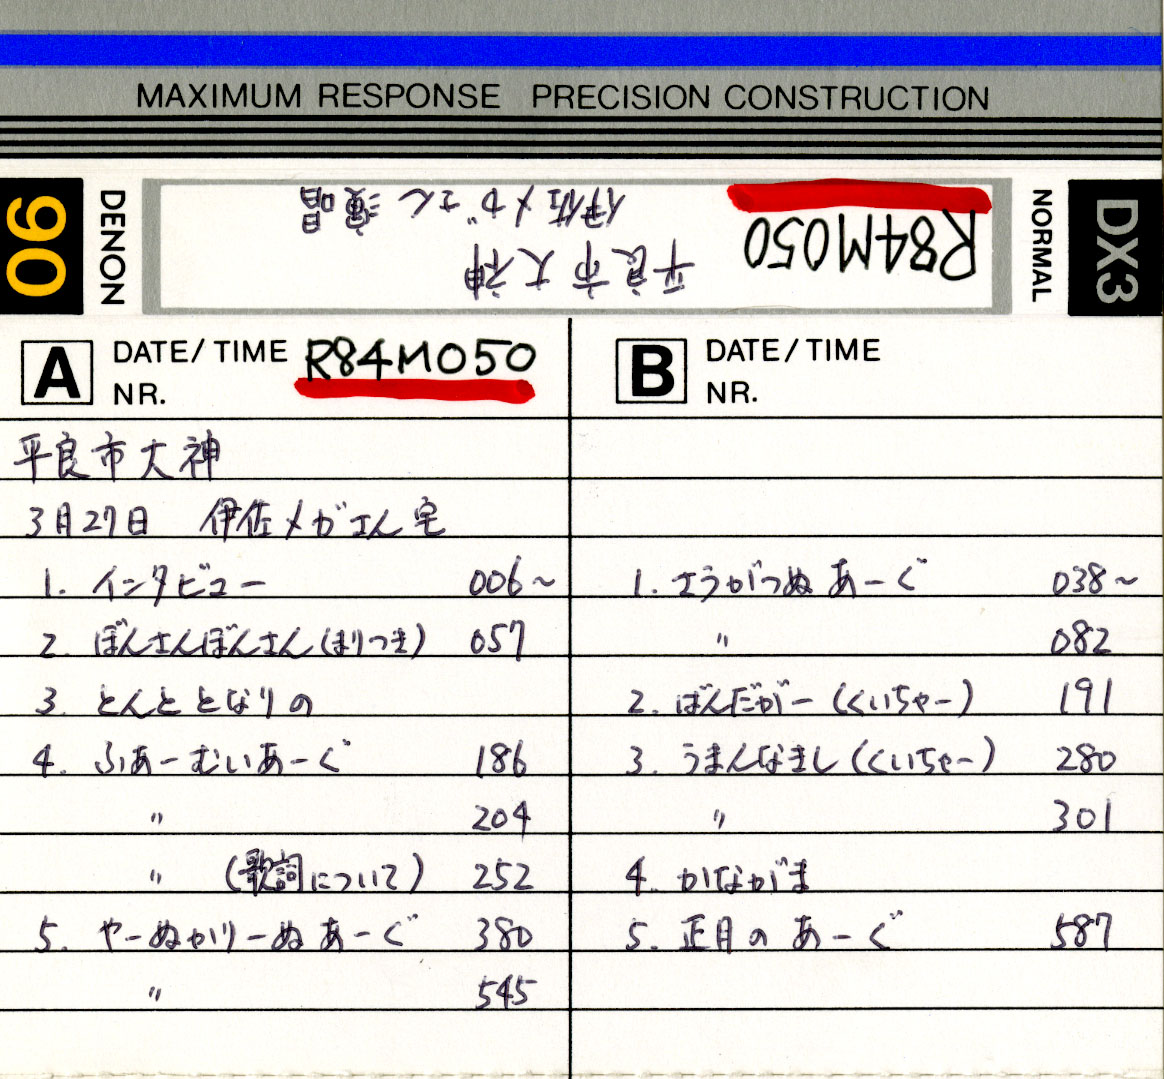 MAXIMUM RESPONSE PRECISION CONSTRUCTION
90 DENON
R84M050 平良市大神
伊佐メガさん 演唱
NORMAL DX3
A DATE/TIME NR. R84M050
平良市大神
3月27日 伊佐メガさん宅
1. インタビュー 006~
2. ぼんさんぼんさん(まりつき) 057
3. とんととなりの
4. ふあーむいあーぐ 186
〃 204
〃 (歌詞について) 252
5. やーぬかりーぬあーぐ 380
〃 545
B DATE/TIME NR.
1. さうがつぬあーぐ 038~
〃 082
2. ばんだがー(くいちゃー) 191
3. うまんなまし(くいちゃー) 280
〃 301
4. かながま
5. 正月のあーぐ 587